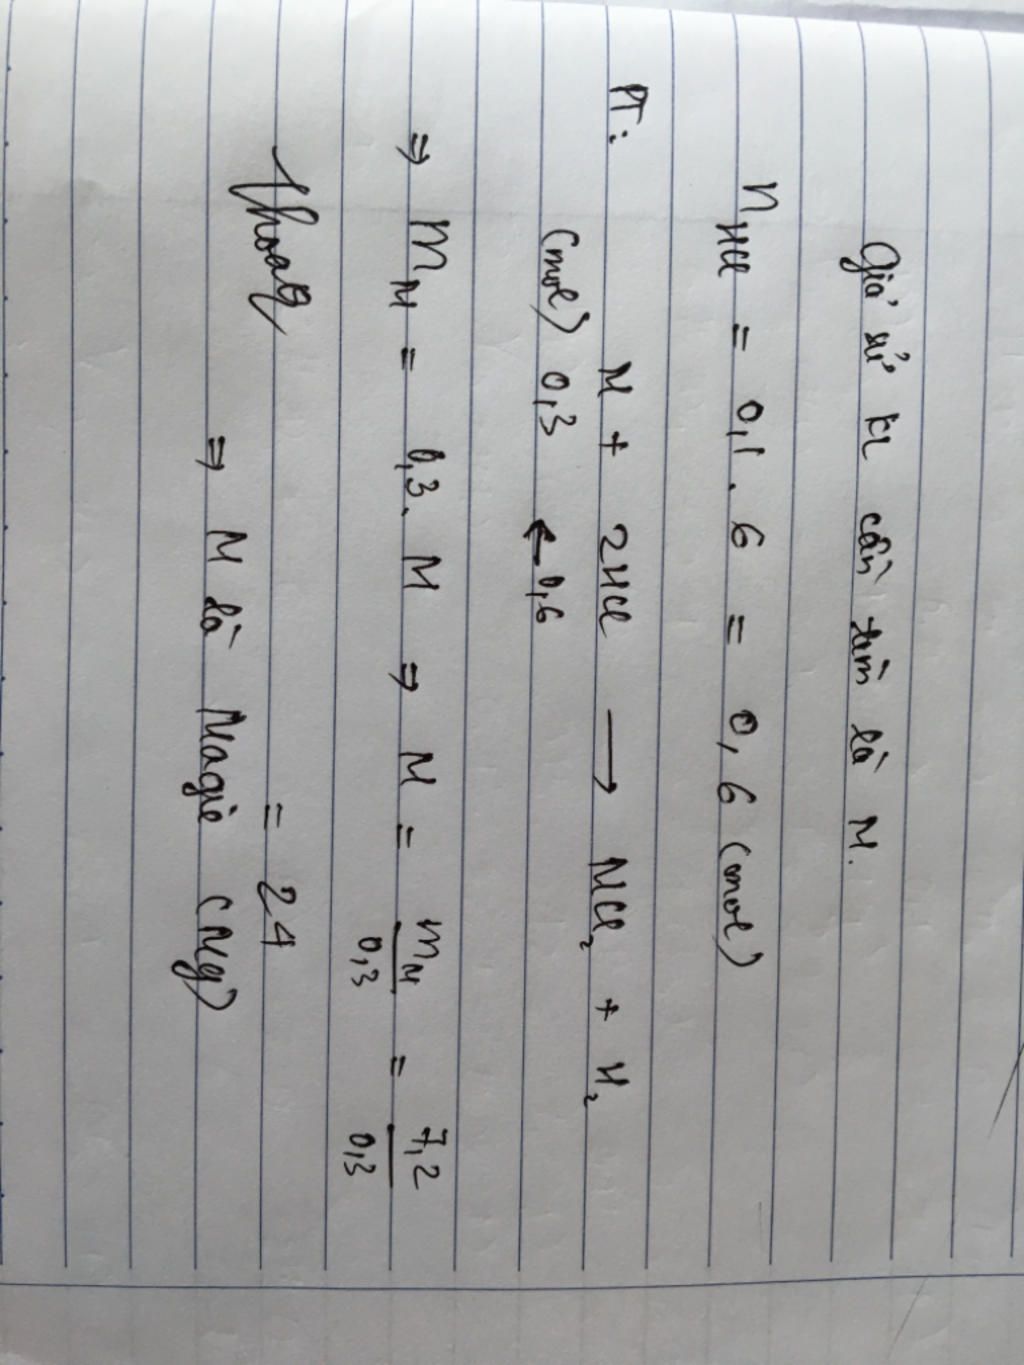 Giả sử KL cần tìm là M.
nHCl = 0,1 . 6 = 0,6 (mol)
PT: M + 2HCl → MCl₂ + H₂
(mol) 0,3 ← 0,6
⇒ mM = 0,3. M ⇒ M = mM/0,3 = 7,2/0,3
= 24
⇒ M là Magiê (Mg)